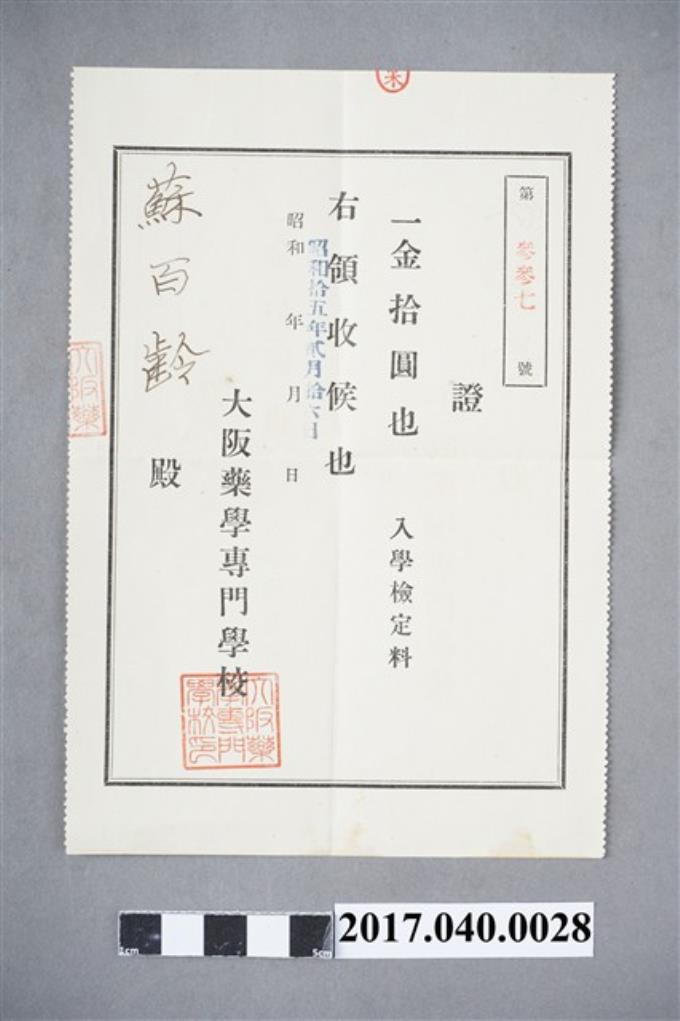 第 參參七 號
證
一金拾圓也 入學檢定料
右領收候也
昭和拾五年貳月拾六日
昭和 年 月 日
大阪藥學專門學校
大阪藥學專門學校印
蘇百齡 殿
大阪藥
1cm 5cm
2017.040.0028